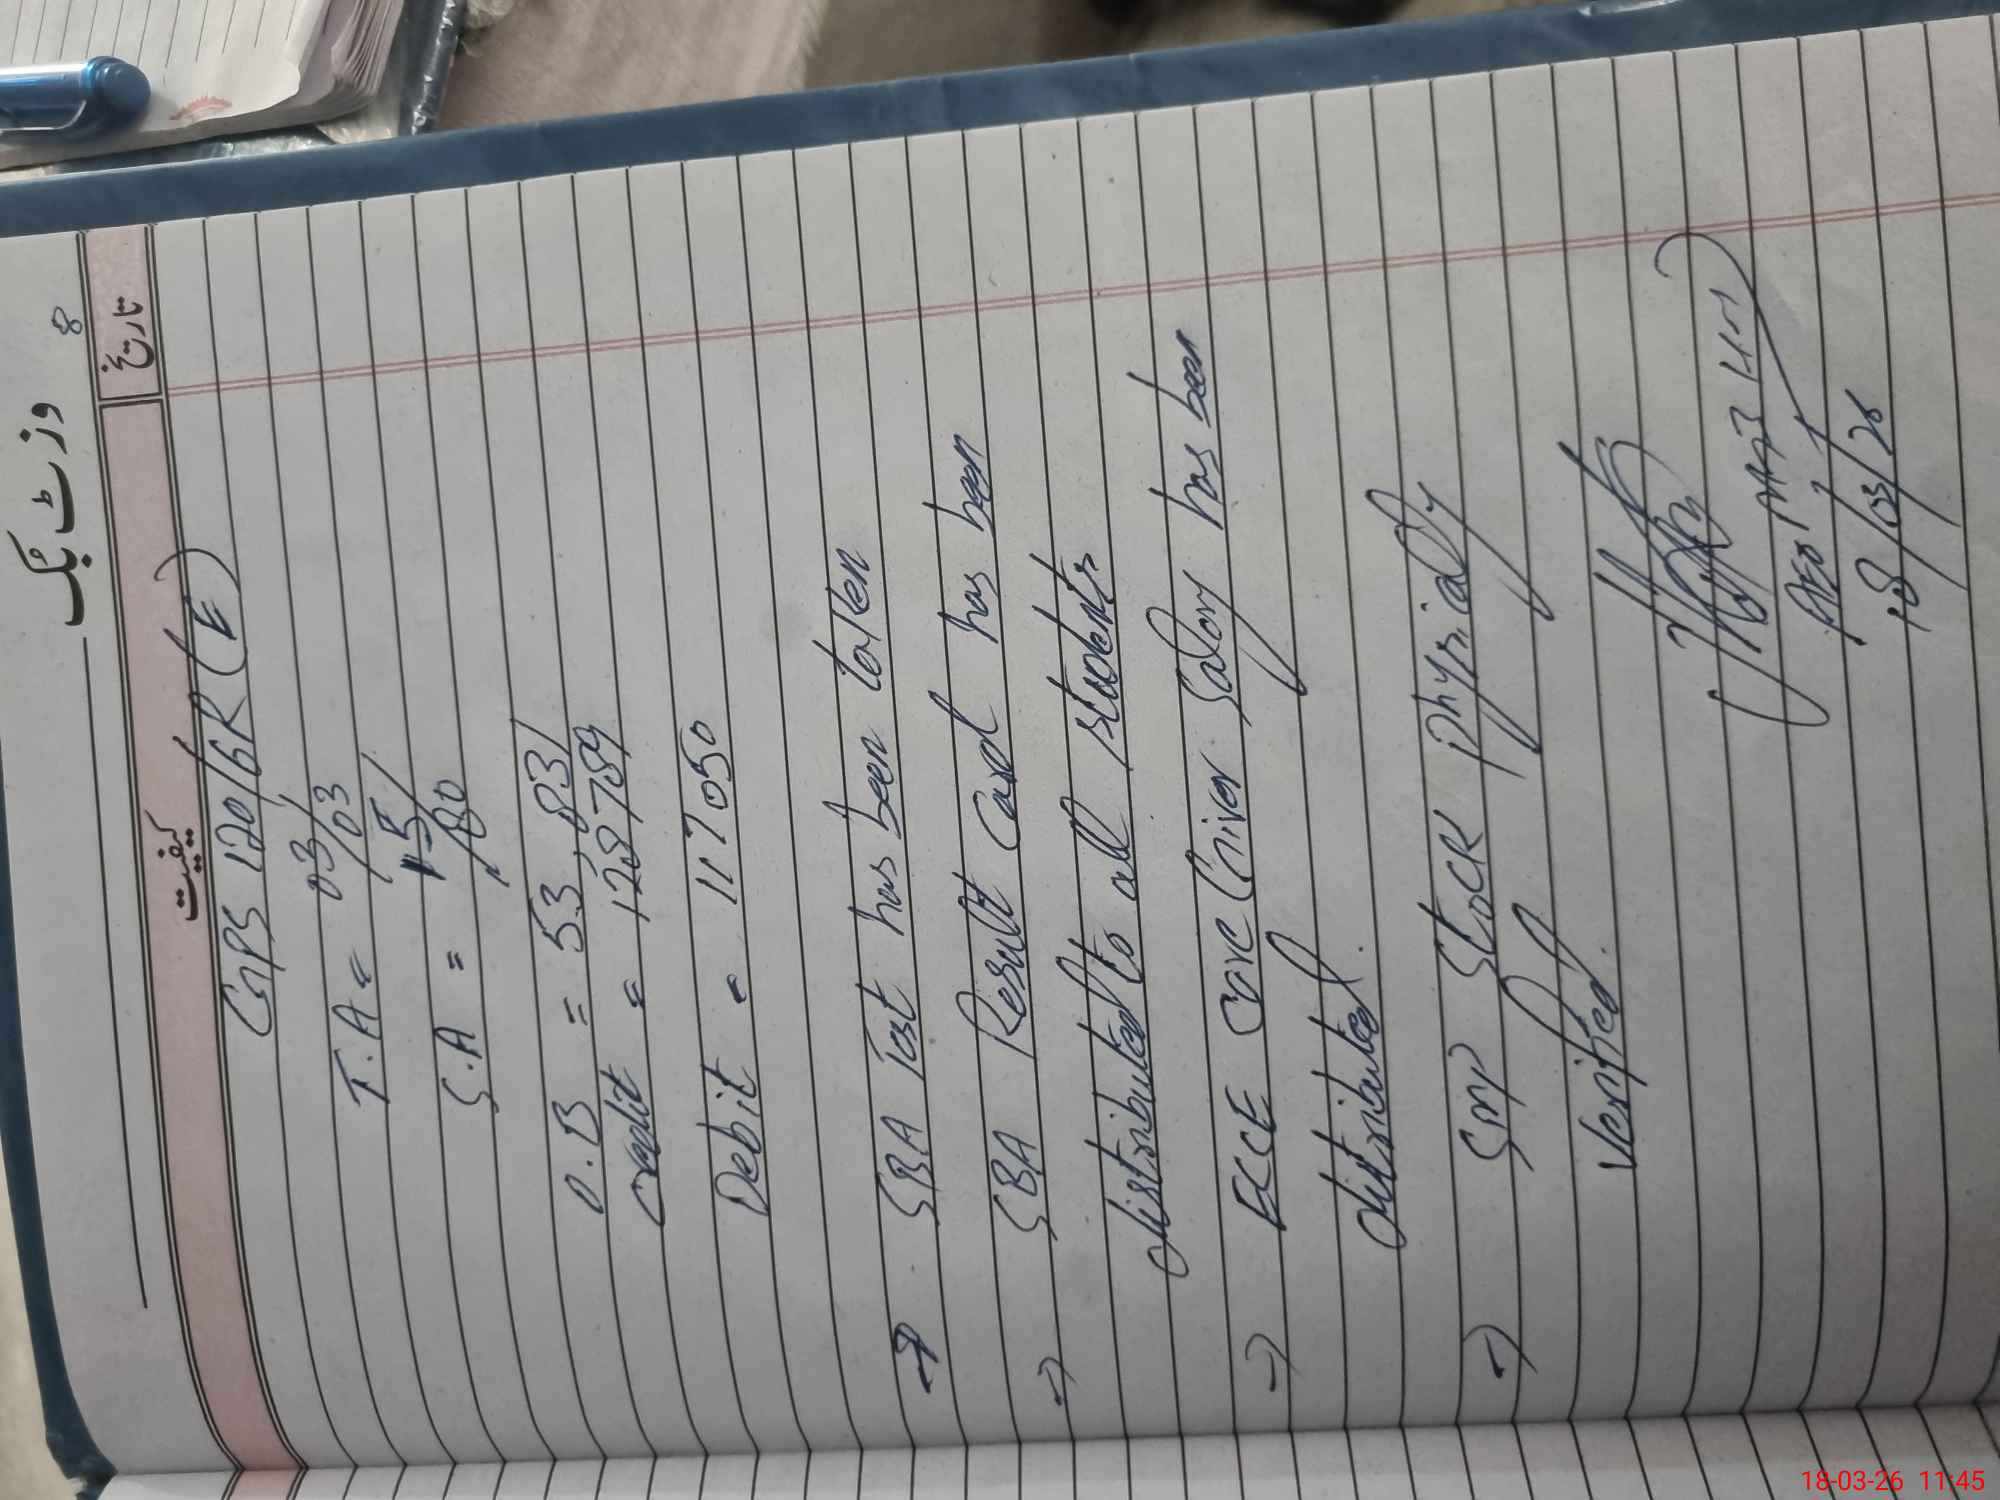 وزٹ بک
8
کیفیت
تاریخ
GPS 120/GR (E)
T.A = 03/03
S.A = 15/80
O.B = 53,831
Credit = 128789
Debit = 117050
→ SBA Test has been taken
→ SBA Result Card has been
distributed to all students
→ ECCE Care Giver Salary has been
distributed.
→ Smp Stock Physically
Verified.
AEO
18/03/26
18-03-26 11:45